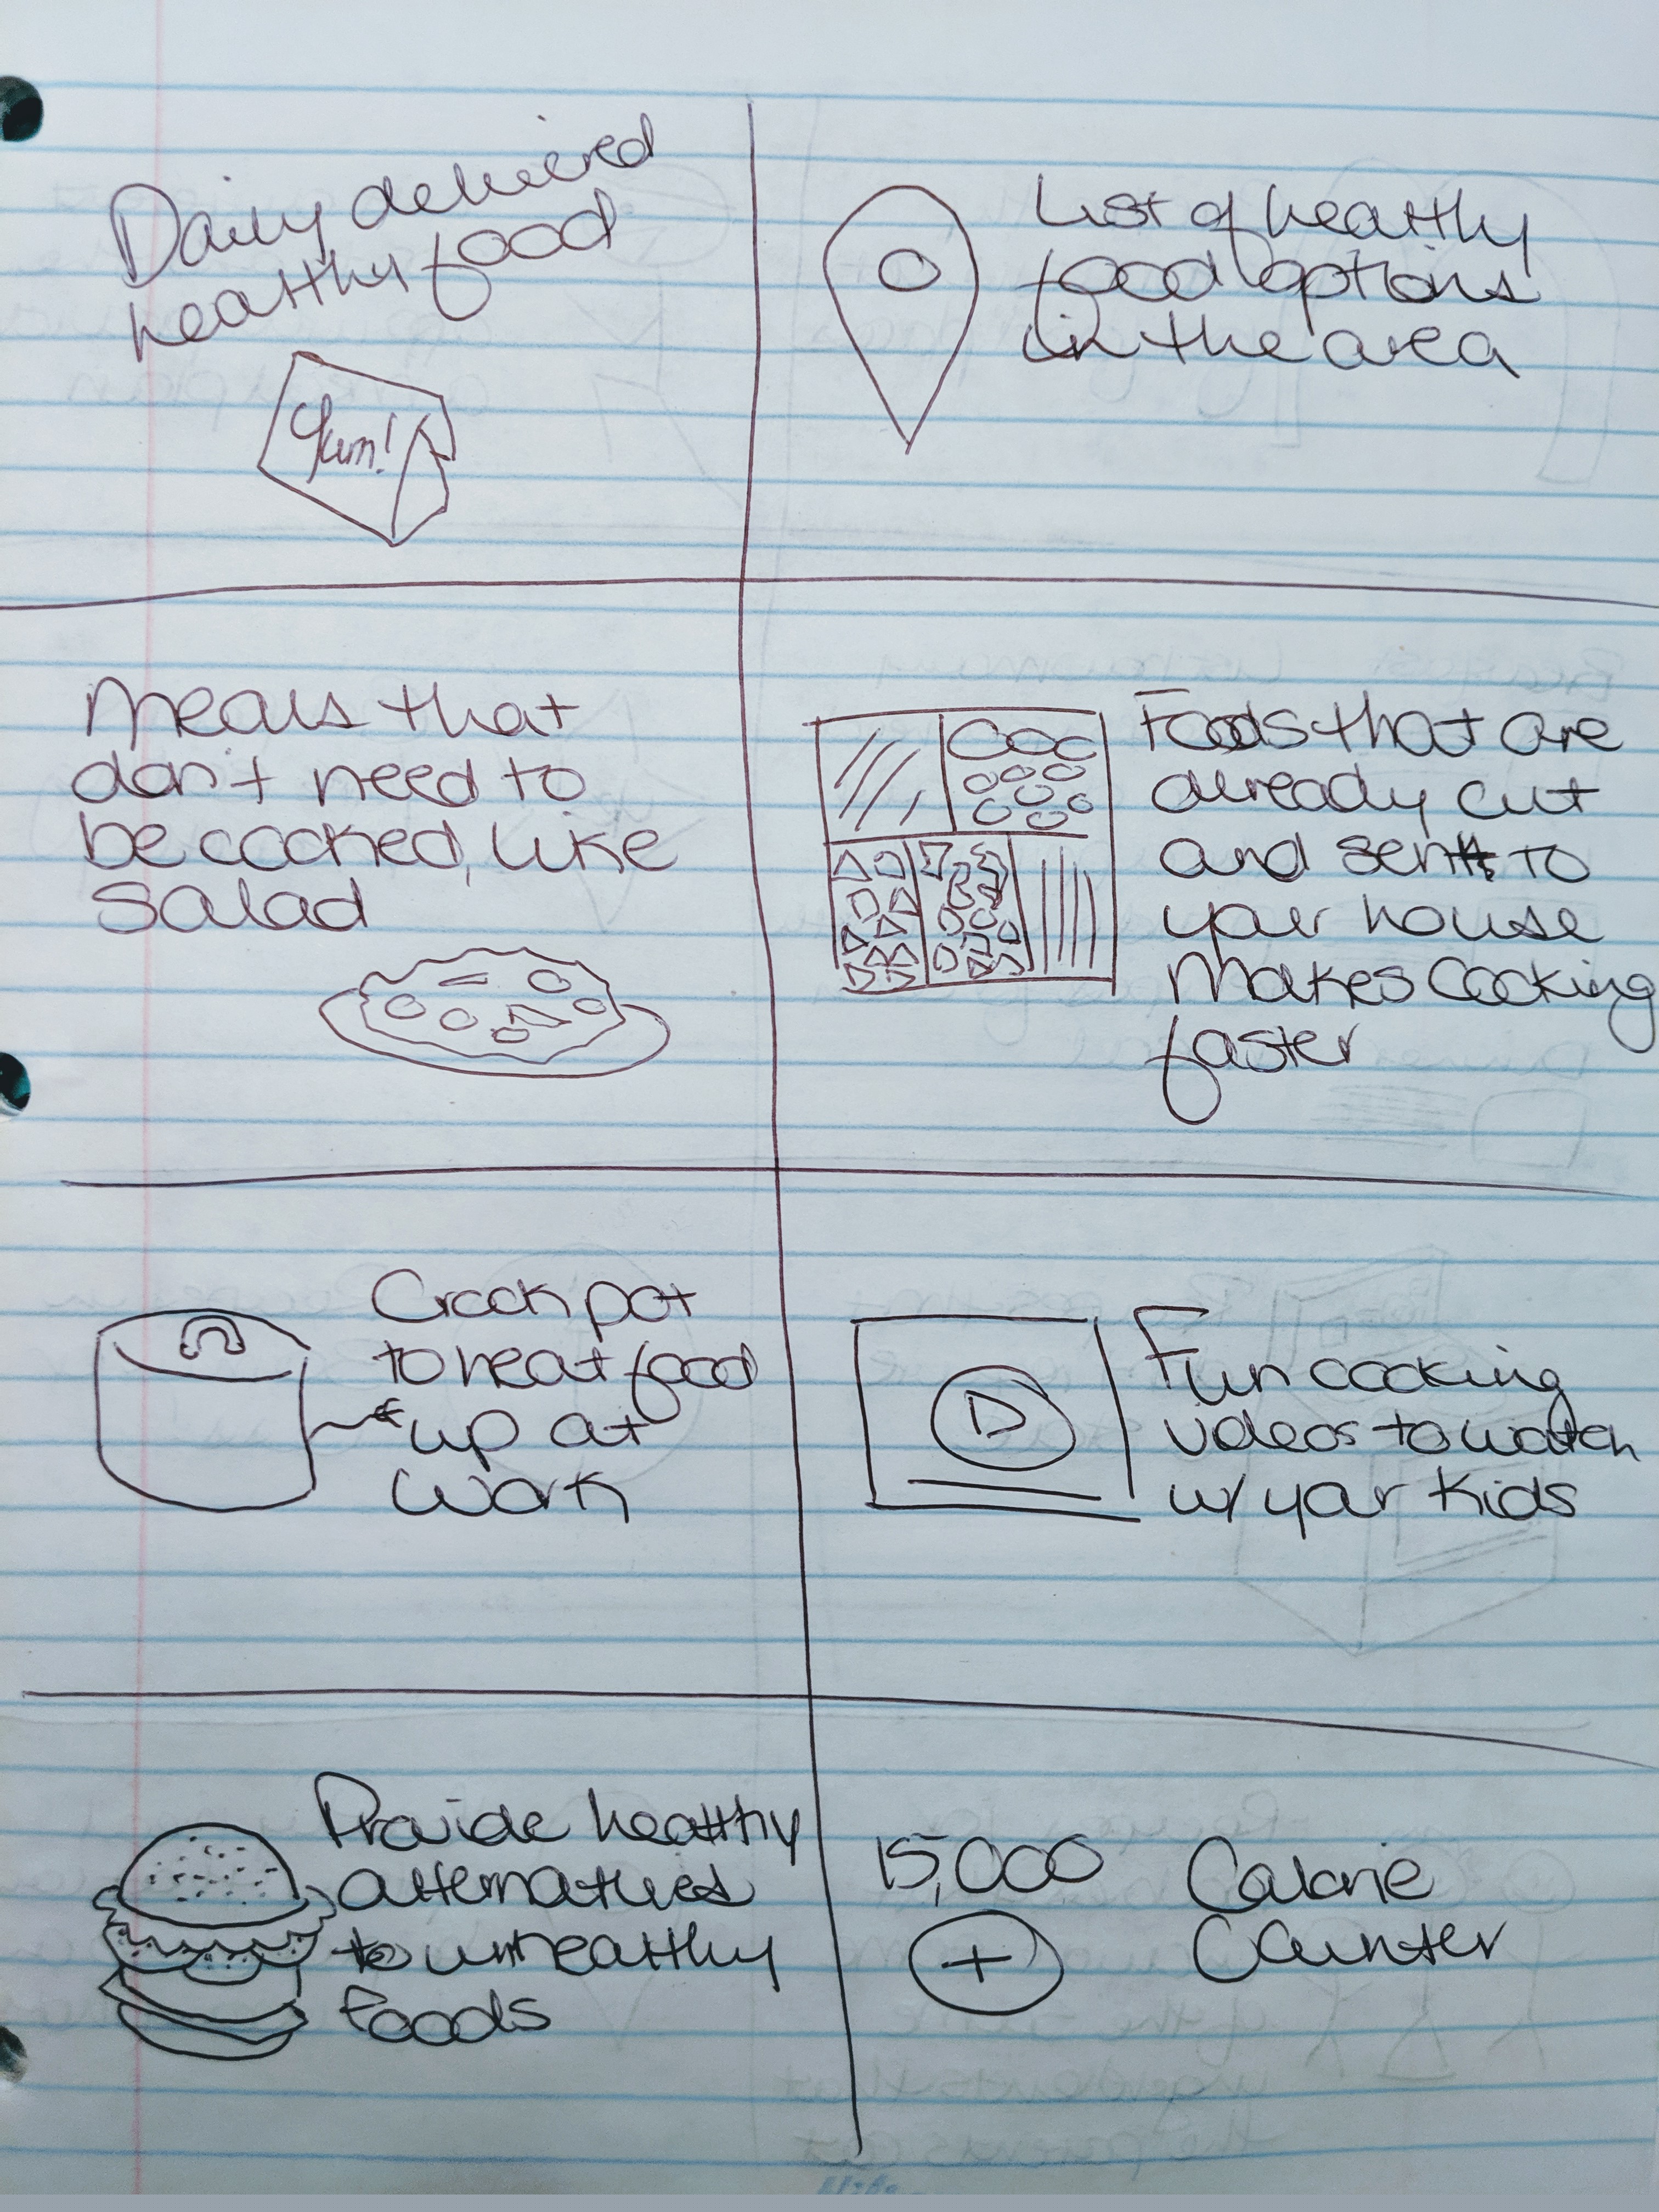 Daily delivered
healthy food
Yum!
List of healthy
food options
in the area
Meals that
don't need to
be cooked, like
salad
Foods that are
already cut
and sent to
your house
makes cooking
faster
Crock pot
to heat food
up at
work
Fun cooking
videos to watch
w/ your kids
Provide healthy
alternatives
to unhealthy
foods
15,000
+
Calorie
Counter